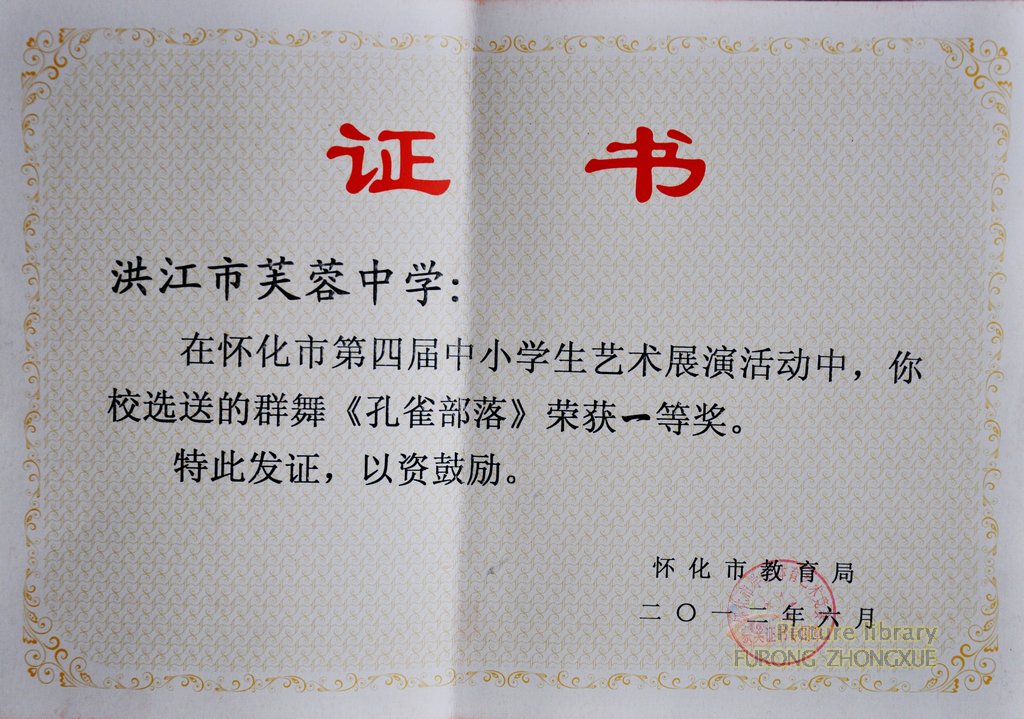 证书
洪江市芙蓉中学：
在怀化市第四届中小学生艺术展演活动中，你
校选送的群舞《孔雀部落》荣获一等奖。
特此发证，以资鼓励。
怀化市教育局
二〇一二年六月
Picture library
FURONG ZHONGXUE